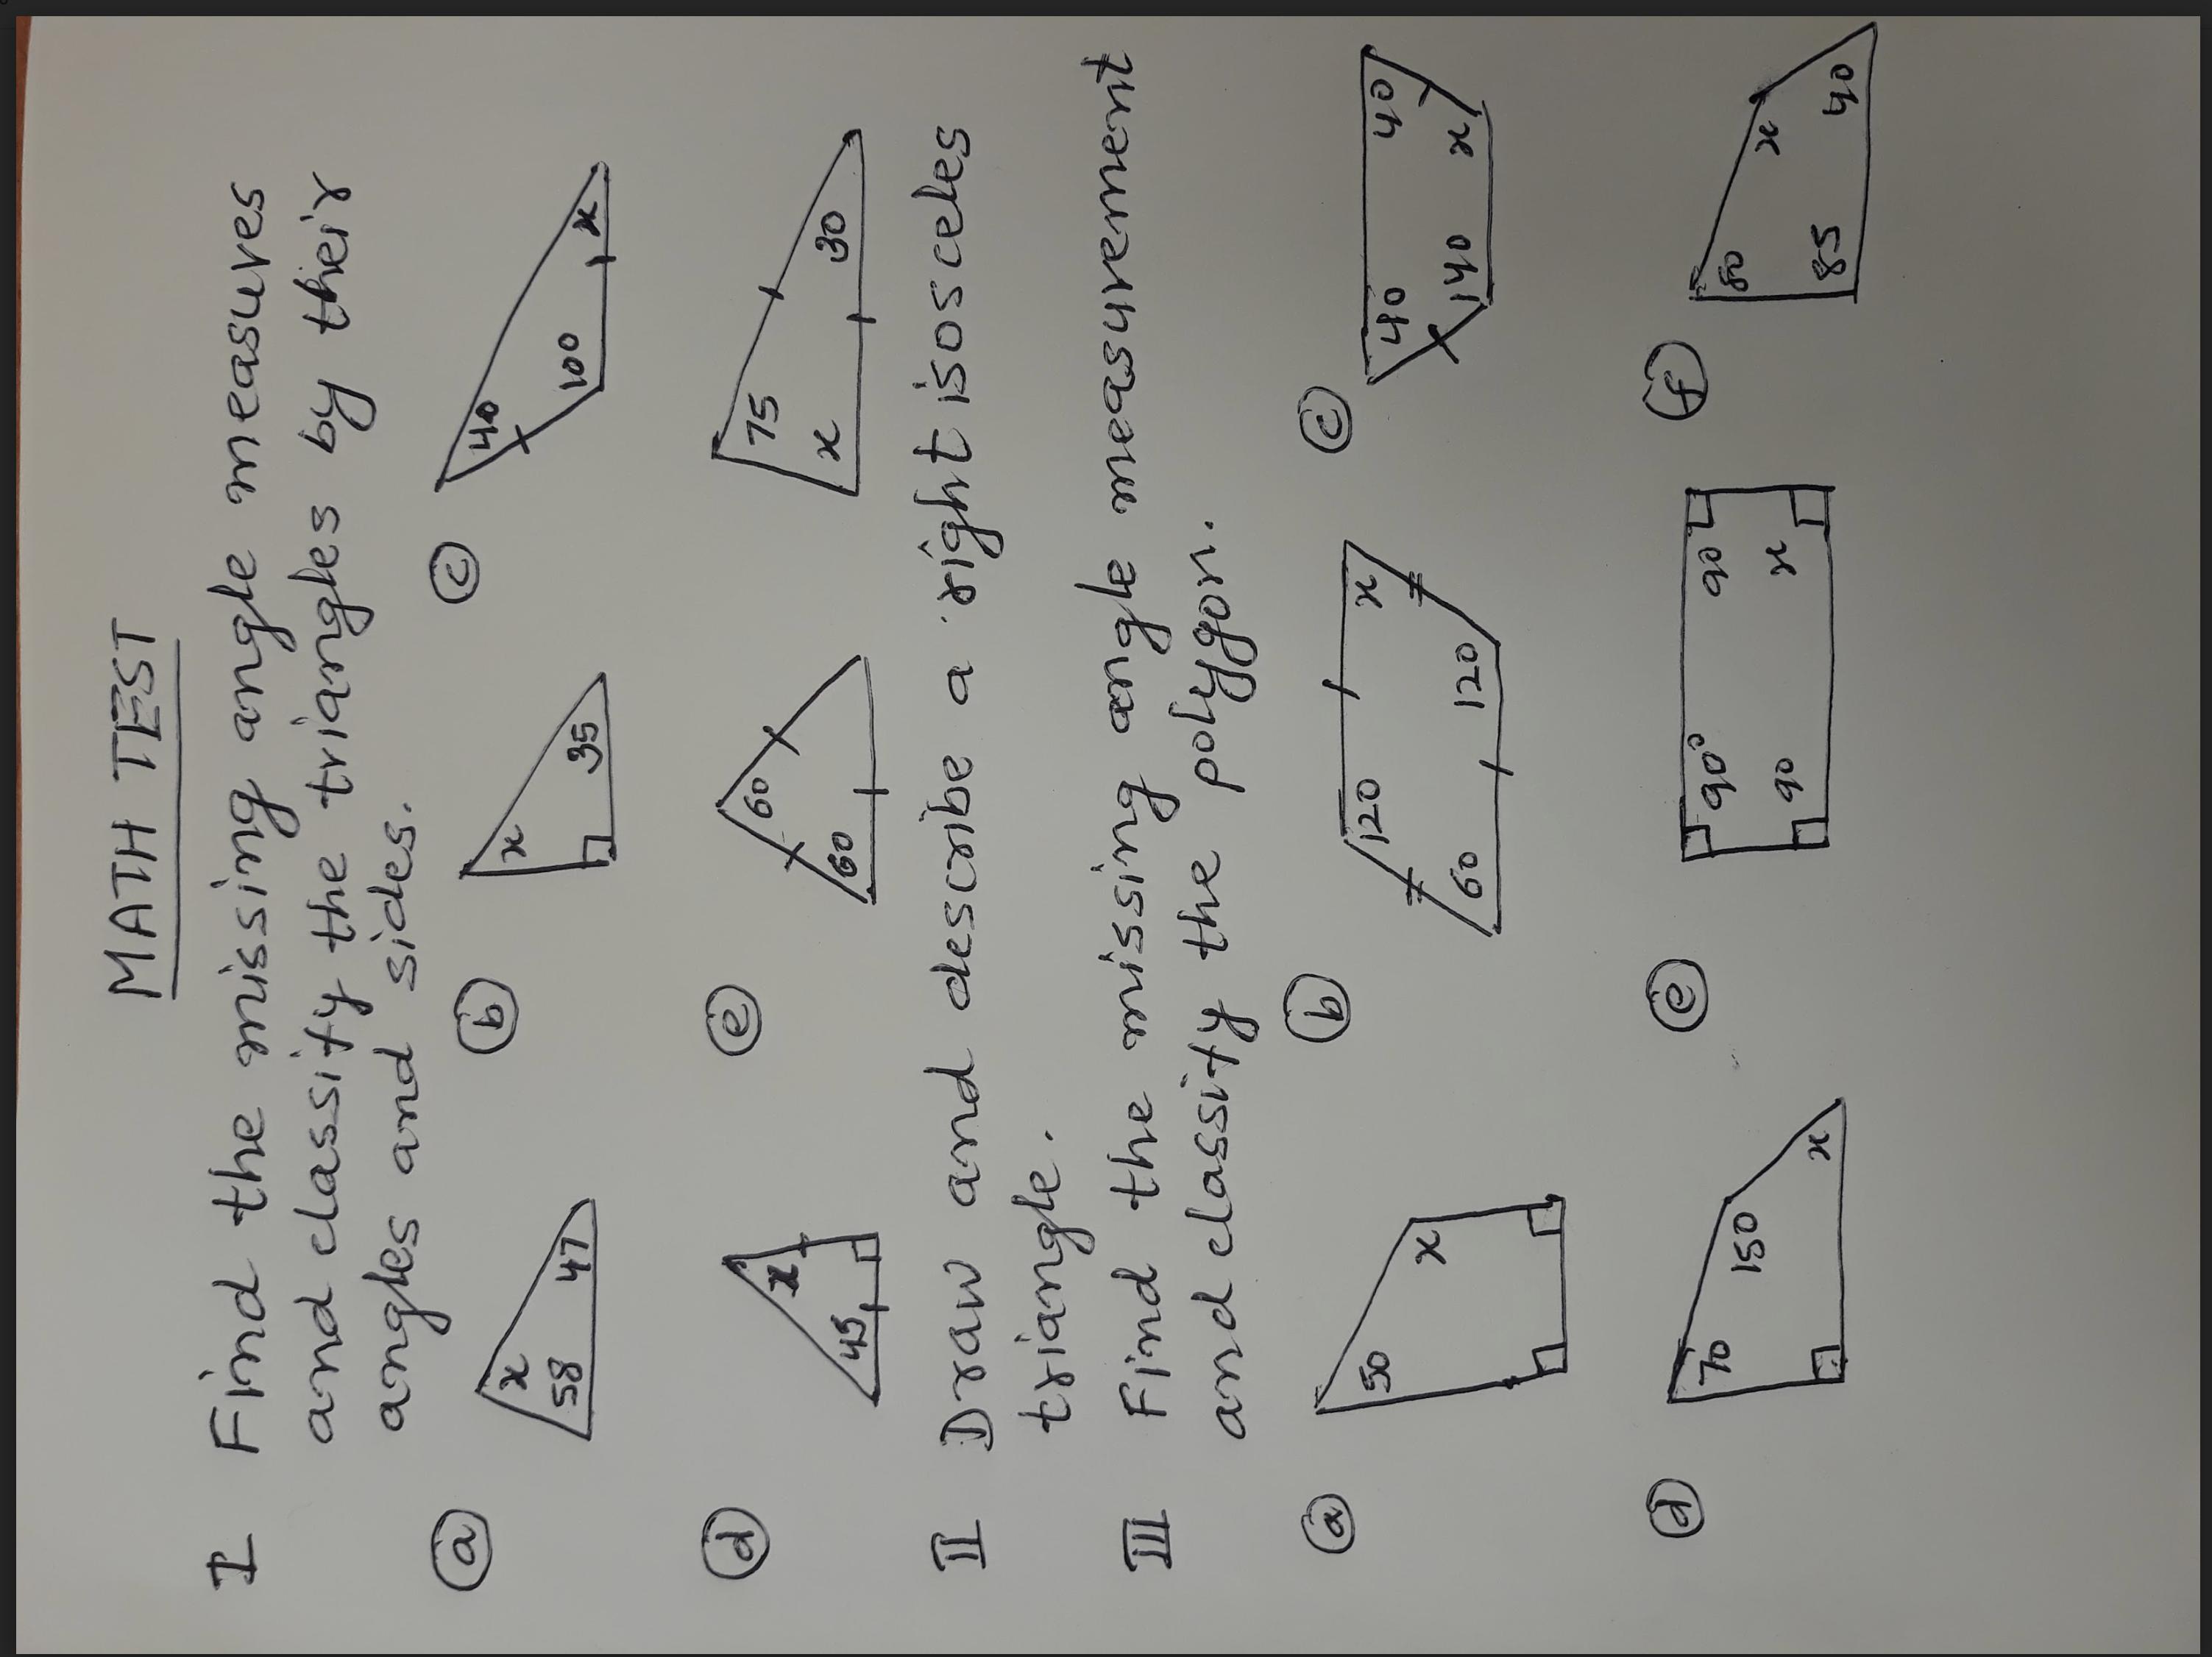 MATH TEST
I Find the missing angle measures
and classify the triangles by their
angles and sides.
(a) x 58 47
(b) x 35
(c) 40 100 x
(d) 45 x
(e) 60 60
75 x 30
II Draw and describe a right isosceles
triangle.
III Find the missing angle measurement
and classify the polygon.
(a) 50 x
(b) 120 x 60 120
(c) 40 40 140 x
(d) 70 150 x
(e) 90° 90 90 x
(f) 80 x 85 40